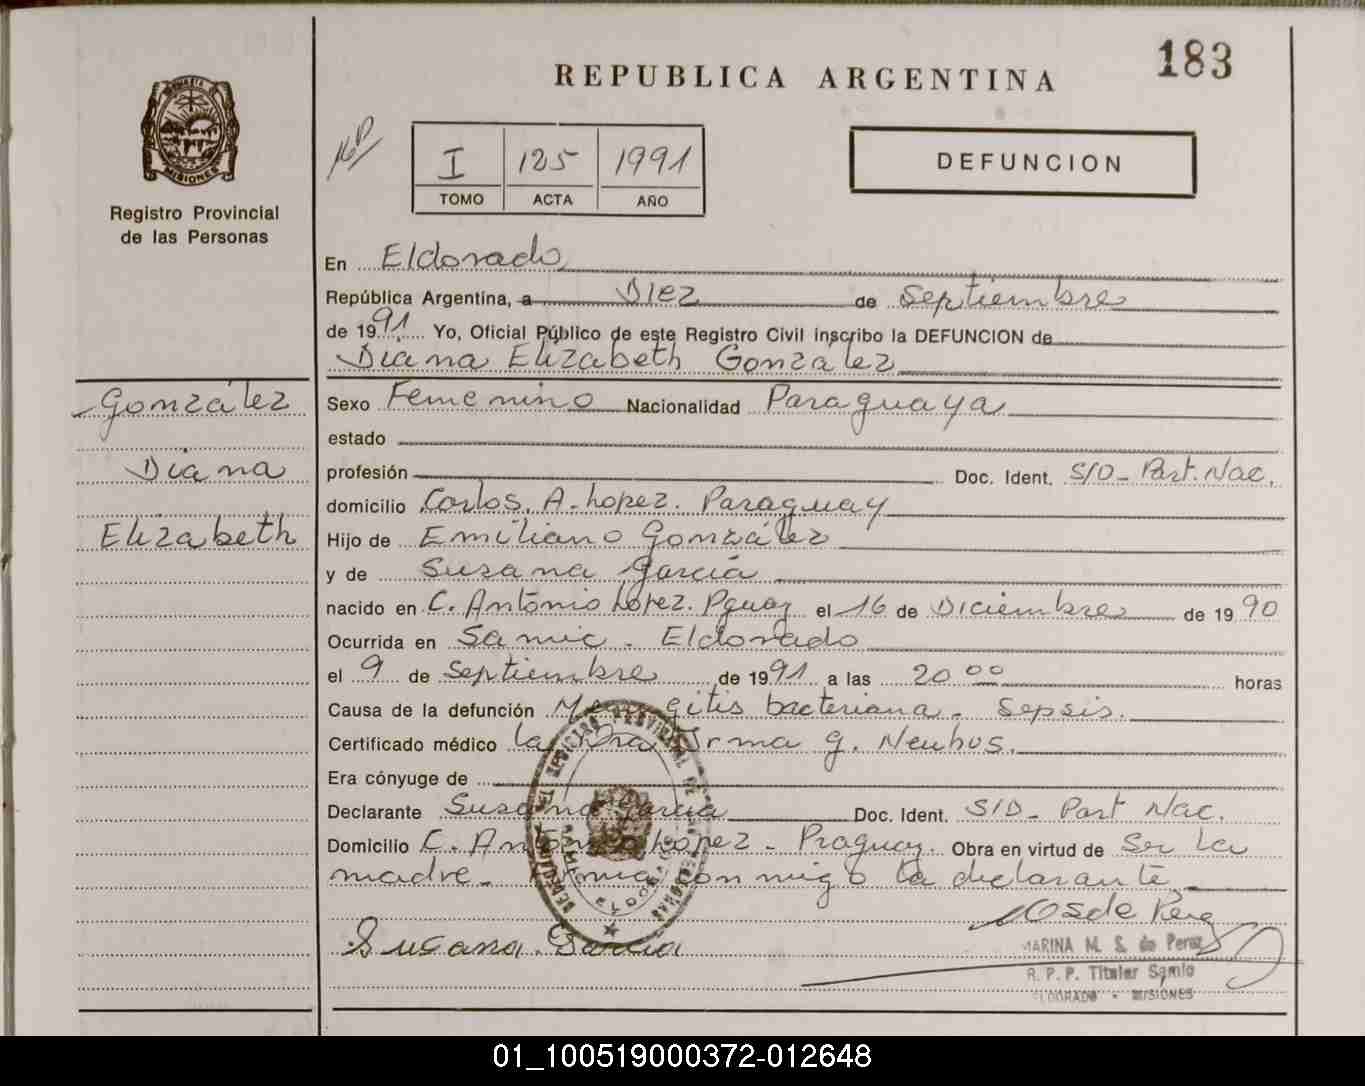 183
REPUBLICA ARGENTINA
I 125 1991
TOMO ACTA AÑO
DEFUNCION
MISIONES
Registro Provincial
de las Personas
González
Diana
Elizabeth
En Eldorado
República Argentina, a Diez de Septiembre
de 1991 Yo, Oficial Público de este Registro Civil inscribo la DEFUNCION de
Diana Elizabeth González
Sexo Femenino Nacionalidad Paraguaya
estado
profesión Doc. Ident. S/D - Part. Nac.
domicilio Carlos. A. Lopez. Paraguay
Hijo de Emiliano González
y de Susana García
nacido en C. Antonio López. Pguay el 16 de Diciembre de 1990
Ocurrida en Samic. Eldorado
el 9 de Septiembre de 1991 a las 20 00 horas
Causa de la defunción Meningitis bacteriana - Sepsis.
Certificado médico La Dra Irma G. Neuhus.
Era cónyuge de
Declarante Susana García Doc. Ident. S/D - Part Nac.
Domicilio C. Antonio López - Praguay. Obra en virtud de Ser la
madre - Firma conmigo la declarante
Susana. Garcia
MARINA M. S. de Perez
R. P. P. Titular Samic
ELDORADO - MISIONES
01_100519000372-012648